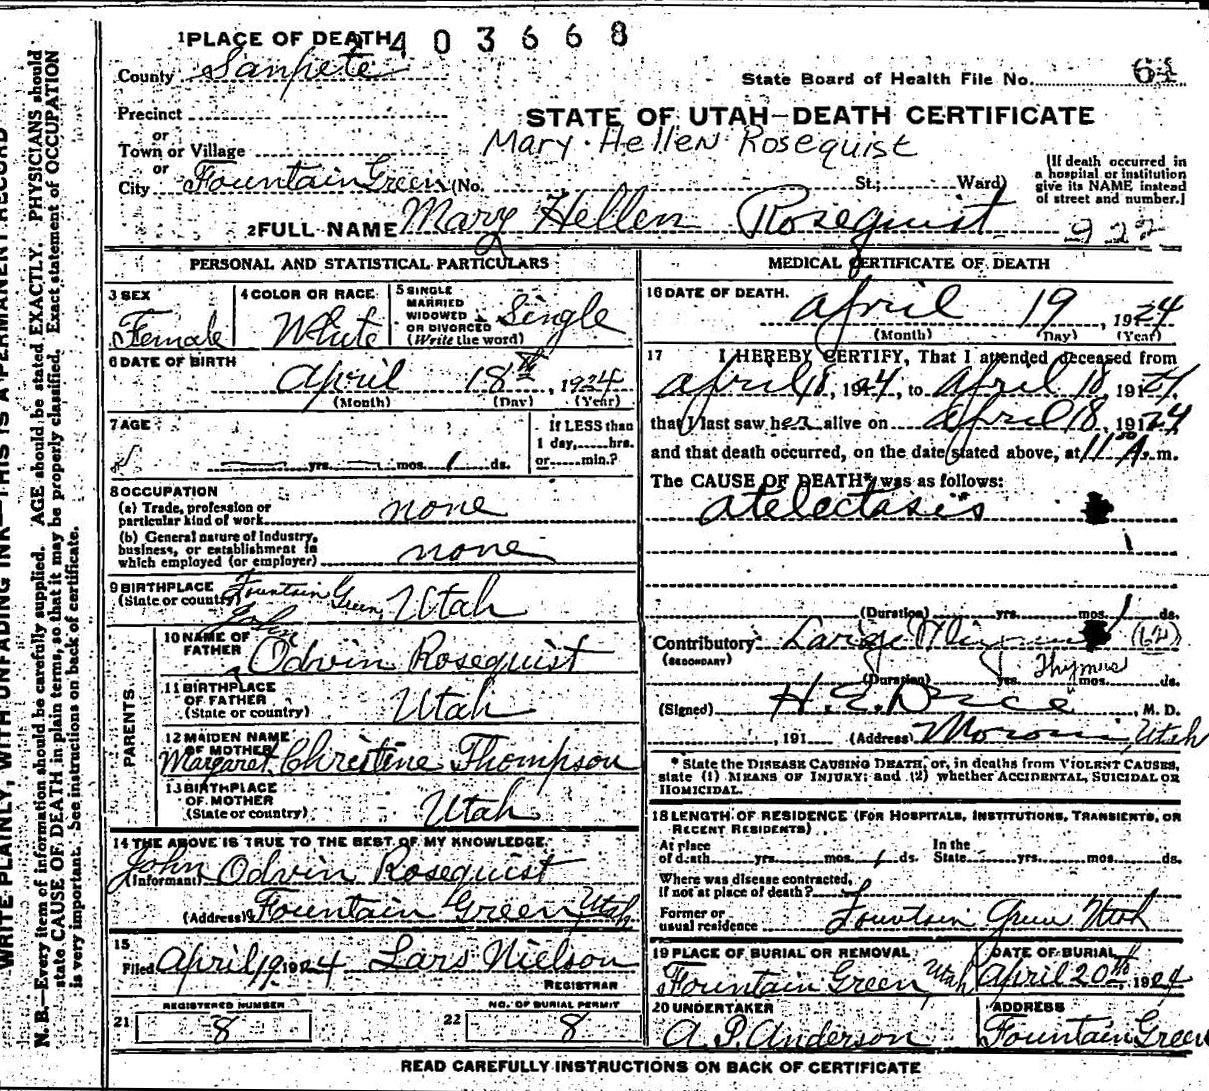 1 PLACE OF DEATH 2 4 0 3 6 6 8
County Sanpete
State Board of Health File No. 64
Precinct
STATE OF UTAH—DEATH CERTIFICATE
or
Town or Village
Mary Hellen Rosequist
or
City Fountain Green (No. St.; Ward)
(If death occurred in
a hospital or institution
give its NAME instead
of street and number.]
2 FULL NAME Mary Hellen Rosequist 922
PERSONAL AND STATISTICAL PARTICULARS
3 SEX
Female
4 COLOR OR RACE
White
5 SINGLE
MARRIED
WIDOWED
OR DIVORCED
(Write the word)
Single
6 DATE OF BIRTH
April 18th, 1924
(Month) (Day) (Year)
7 AGE
yrs. mos. 1 ds.
If LESS than
1 day, hrs.
or min.?
8 OCCUPATION
(a) Trade, profession or
particular kind of work none
(b) General nature of industry,
business, or establishment in
which employed (or employer) none
9 BIRTHPLACE
(State or country) Fountain Green, Utah
PARENTS
10 NAME OF
FATHER
John Odvin Rosequist
11 BIRTHPLACE
OF FATHER
(State or country) Utah
12 MAIDEN NAME
OF MOTHER
Margaret Christine Thompson
13 BIRTHPLACE
OF MOTHER
(State or country) Utah
14 THE ABOVE IS TRUE TO THE BEST OF MY KNOWLEDGE.
(Informant) John Odvin Rosequist
(Address) Fountain Green Utah
15
Filed April 19 1924 Lars Nielson
REGISTRAR
REGISTERED NUMBER
21 8
NO. OF BURIAL PERMIT
22 8
MEDICAL CERTIFICATE OF DEATH
16 DATE OF DEATH.
April 19, 1924
(Month) (Day) (Year)
17 I HEREBY CERTIFY, That I attended deceased from
April 18, 1924, to April 18 19124,
that I last saw her alive on April 18, 19124
and that death occurred, on the date stated above, at 11 30 A. m.
The CAUSE OF DEATH* was as follows:
atelectasis
1
(Duration) yrs. mos. 1 ds.
Contributory Large Thymus
(SECONDARY)
Thymus
(Duration) yrs. mos. ds.
(Signed) M. D.
, 191 (Address) Moroni, Utah
* State the DISEASE CAUSING DEATH, or, in deaths from VIOLENT CAUSES,
state (1) MEANS OF INJURY; and (2) whether ACCIDENTAL, SUICIDAL OR
HOMICIDAL.
18 LENGTH OF RESIDENCE (FOR HOSPITALS, INSTITUTIONS, TRANSIENTS, OR
RECENT RESIDENTS)
At place
of death yrs. mos. 1 ds.
In the
State yrs. mos. ds.
Where was disease contracted,
if not at place of death?
Former or
usual residence Fountain Green Utah
19 PLACE OF BURIAL OR REMOVAL
Fountain Green, Utah
DATE OF BURIAL
April 20th, 1924
20 UNDERTAKER
A. P. Anderson
ADDRESS
Fountain Green
READ CAREFULLY INSTRUCTIONS ON BACK OF CERTIFICATE
WRITE PLAINLY, WITH UNFADING INK—THIS IS A PERMANENT RECORD
N. B.—Every item of information should be carefully supplied. AGE should be stated EXACTLY. PHYSICIANS should
state CAUSE OF DEATH in plain terms, so that it may be properly classified. Exact statement of OCCUPATION
is very important. See instructions on back of certificate.